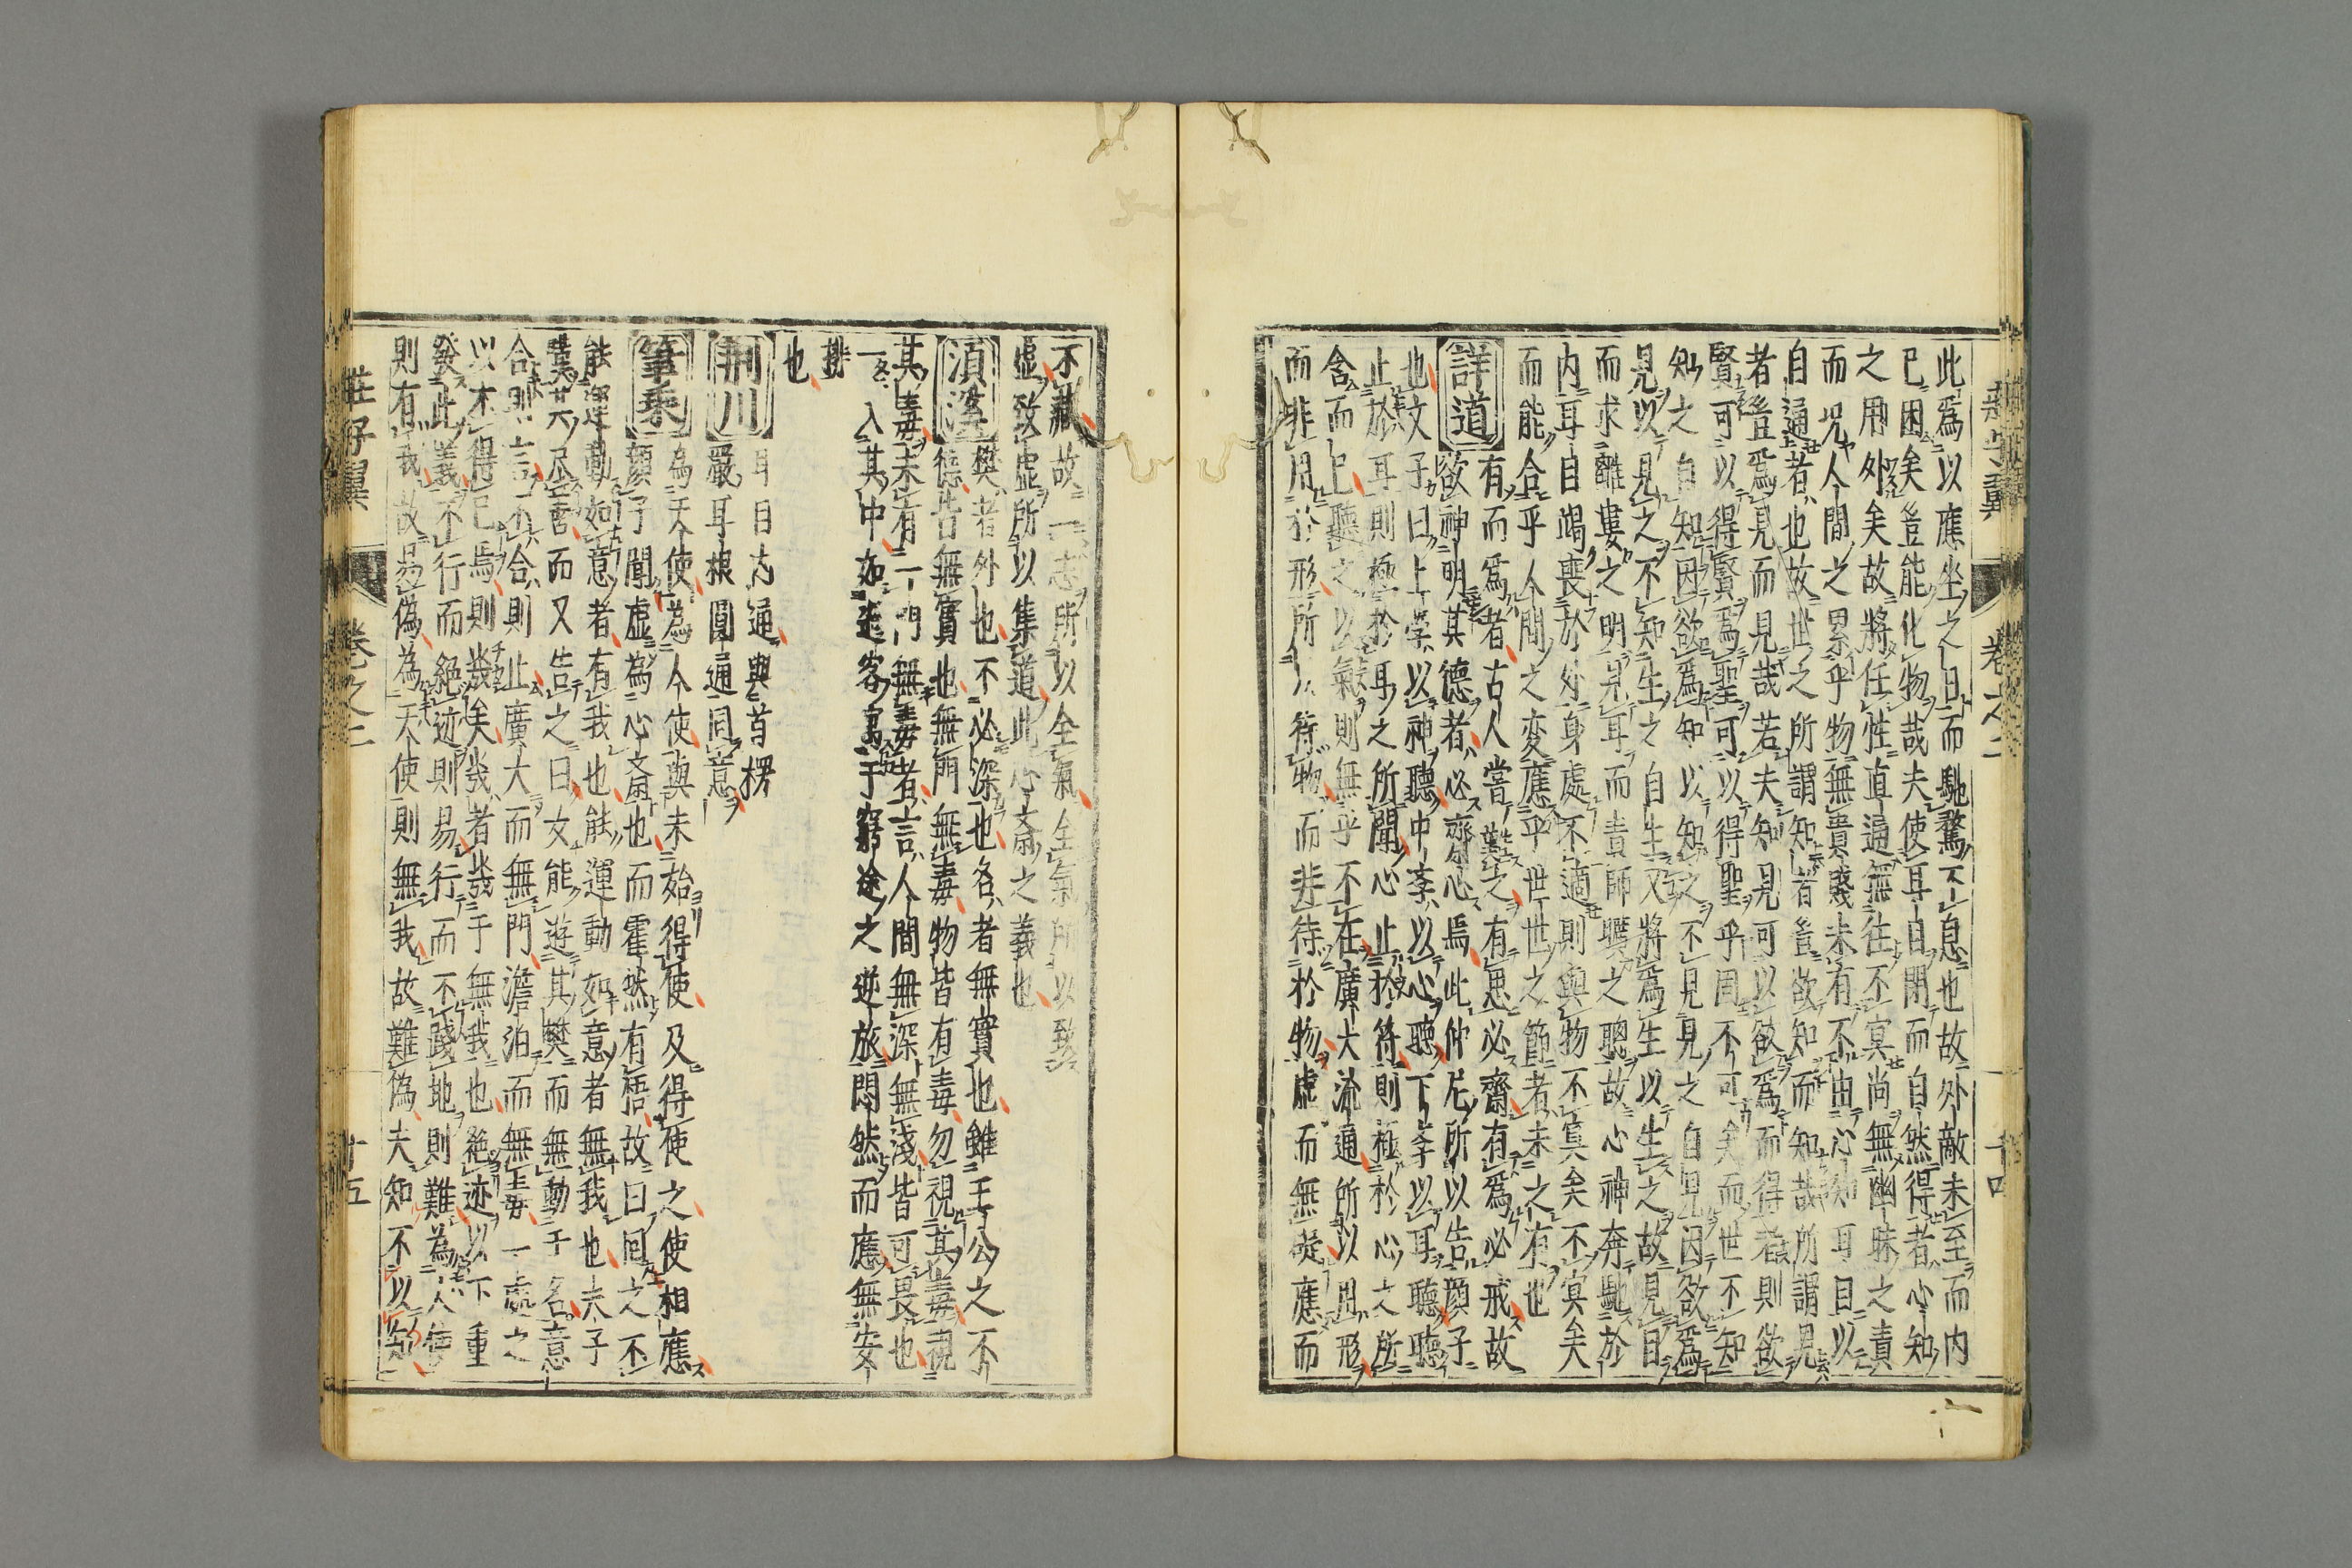 此為以應坐之日而馳騖不息也故外敵未至而内
已困矣豈能化物哉夫使耳目閉而自然得者心知
之用外矣故將任性直通無往不冥尚無幽昧之責
而況人間之累乎物無貴賤未有不由心知耳目以
自通者也故世之所謂知者豈欲知而知哉所謂見
者豈為見而見哉若夫知見可以欲為而得者則欲
賢可以得賢為聖可以得聖乎固不可矣而世不知
知之自知因欲為知以知之不見見之自見因欲為
見以見之不知生之自生又將為生以生之故見目
而求離婁之明見耳而責師曠之聰故心神奔馳於
内耳目竭喪於外身處不適則與物不冥矣不冥矣
而能合乎人間之變應乎世世之節者未之有也
詳道
有而為者古人嘗難之有思必齋有為必戒故
欲神明其德者必齋心焉此仲尼所以告顏子
也文子曰上學以神聽中學以心聽下學以耳聽聽
止於耳則極於耳之所聞心止於符則極於心之所
含而已聽之以氣則無乎不在廣大流通所以用形
而非用於形所以待物而非待於物虛而無礙應而
莊子翼 卷之二 十四
不藏故一志所以全氣全氣所以致
虛致虛所以集道此心齋之義也
須溪
樊者外也不必深也名者無實也雖王公之不
德告無實也無門無毒物皆有毒勿視其毒視
其毒未有一門無毒者言人間無深無淺皆可畏也
一名入其中如逆客寓于窮途之逆旅悶然而應無安
排
也
荊川
耳目内通與首楞
嚴耳根圓通同意
筆乘
為天使為人使與未始得使及得使之使相應
顏子聞虛為心齋也而霍然有悟故曰回之不
能運動如意者有我也能運動如意者無我也夫子
嘆其盡善而又告之曰女能遊其樊而無動于名意
合則言不合則止廣大而無門澹泊而無毒一處之
以不得已焉則幾矣幾者幾于無我也絕迹以下重
發此義不行而絕迹則易行而不踐地則難為人使
則有我故易偽為天使則無我故難偽夫知不以知
莊子翼 卷之二 十五